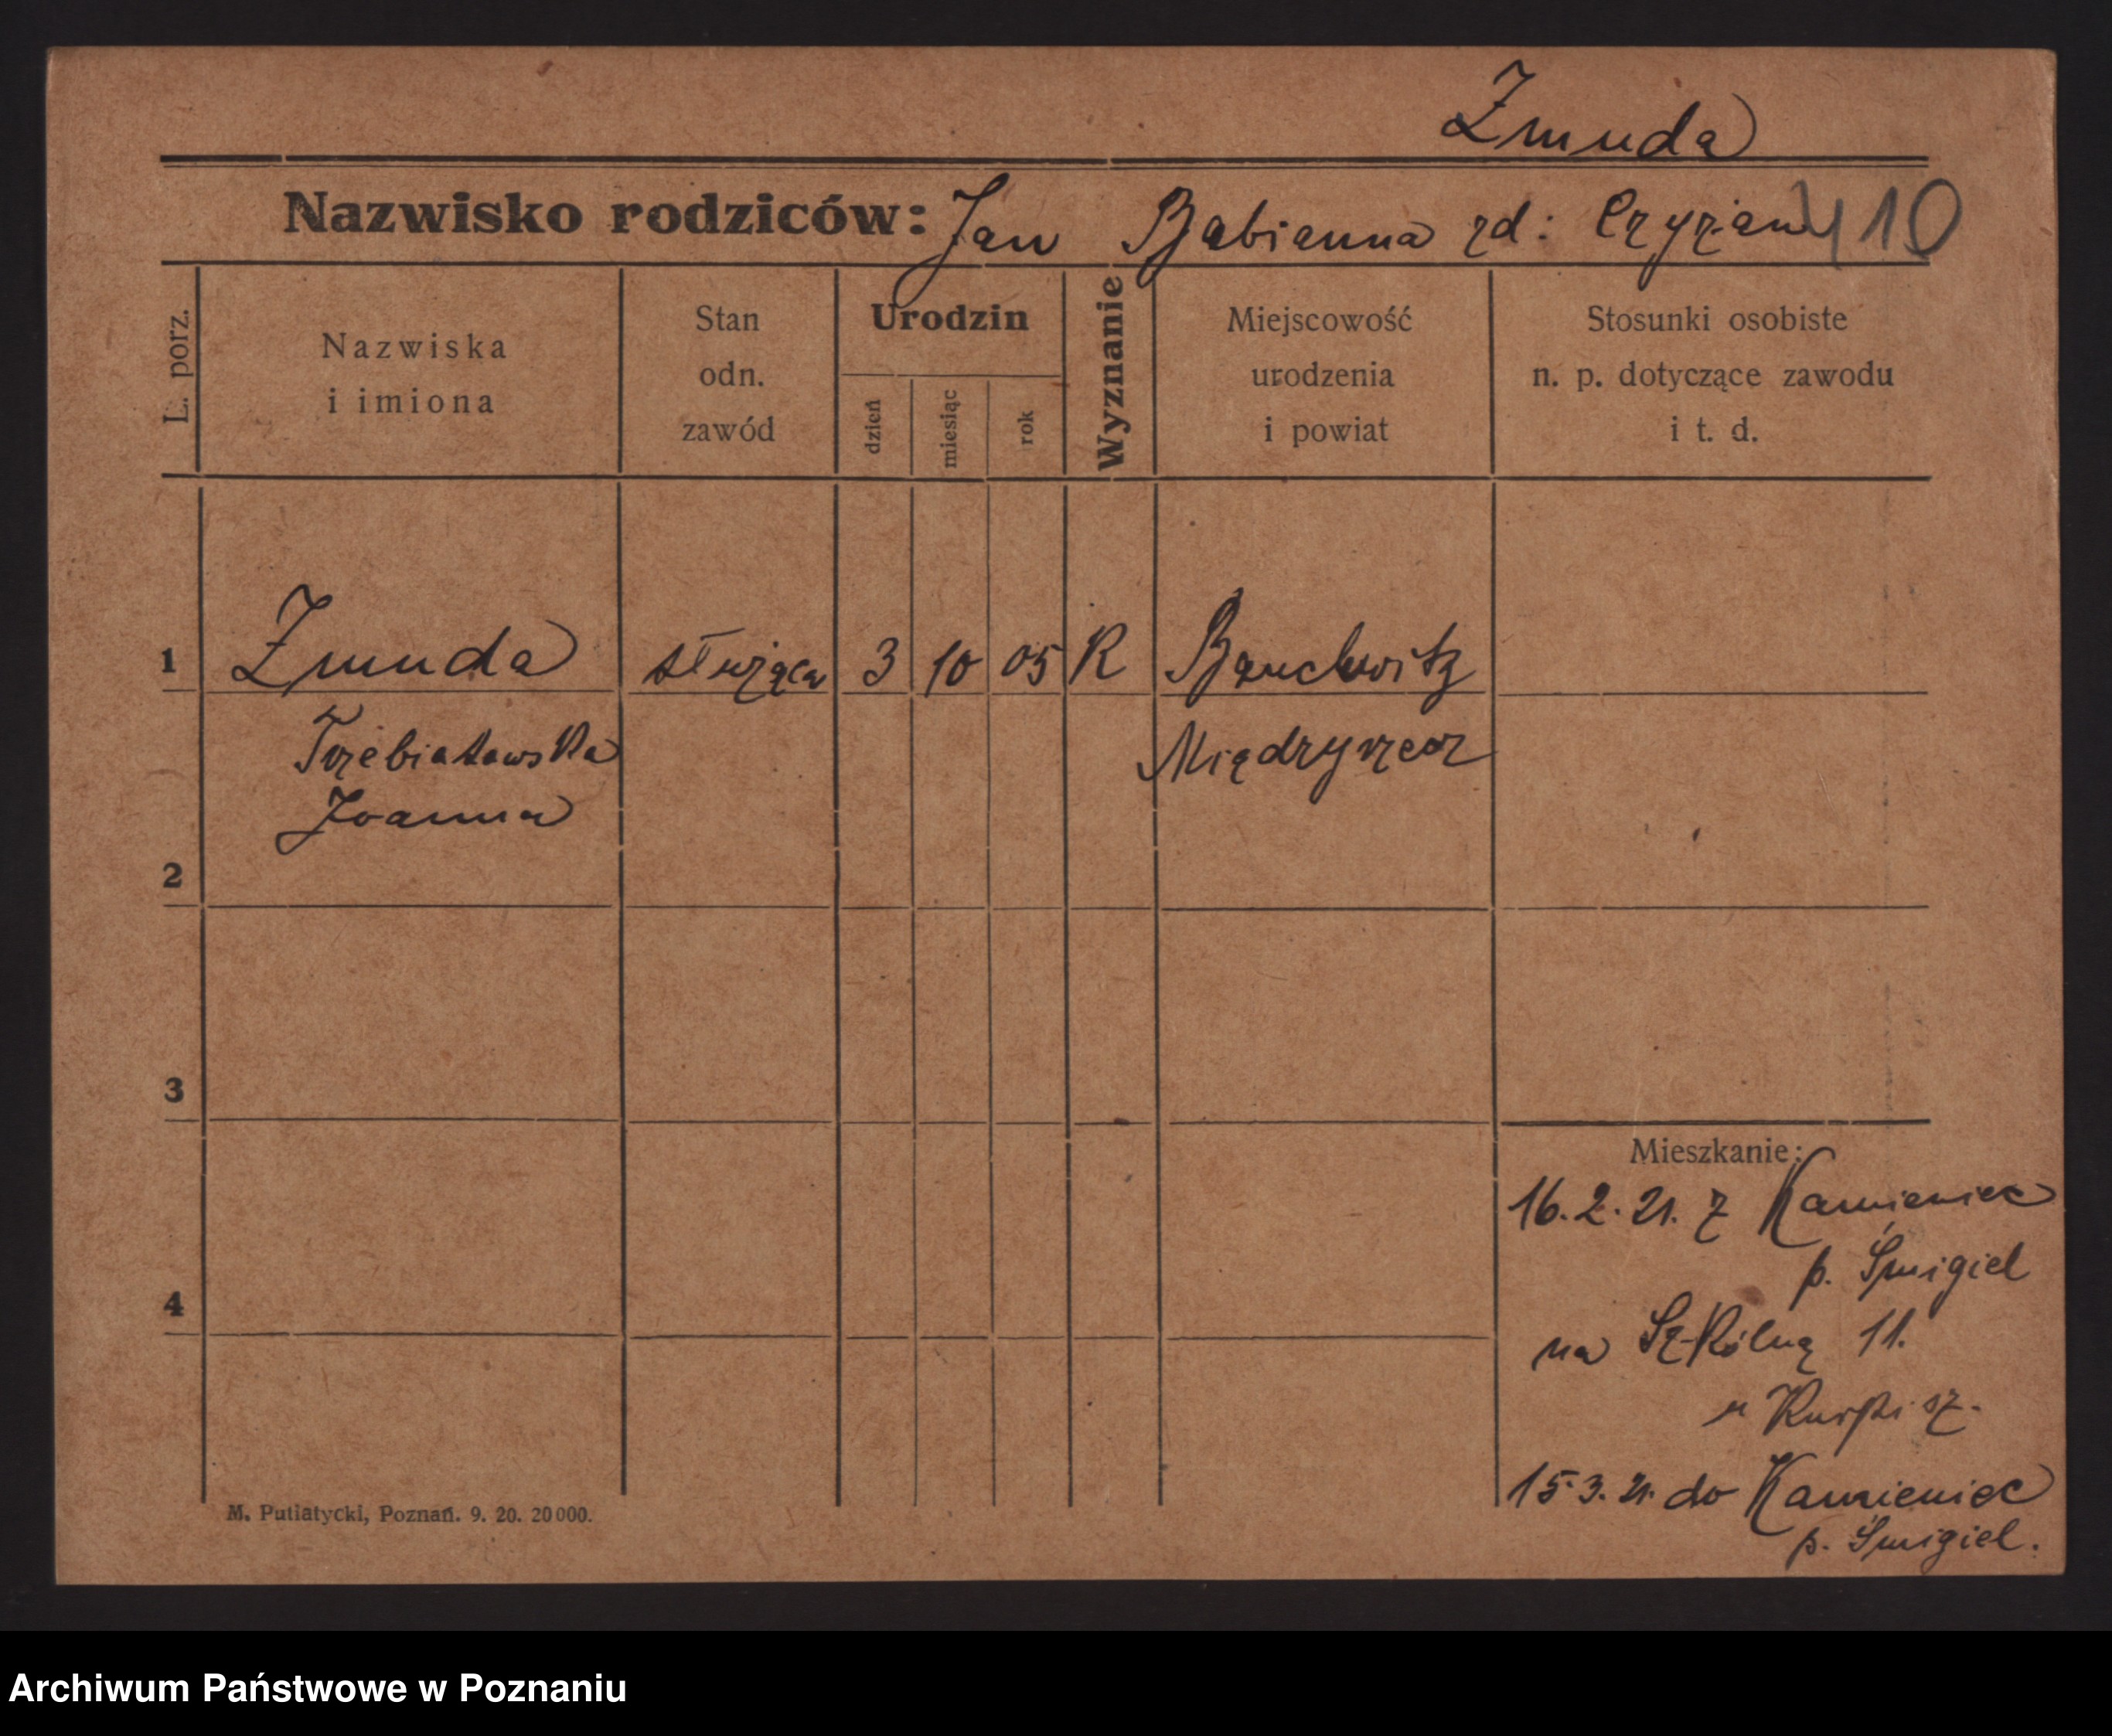 Żmuda
Nazwisko rodziców: Jan Babianna zd: Czyżan 110
L. porz.
Nazwiska
i imiona
Stan
odn.
zawód
Urodzin
dzień
miesiąc
rok
Wyznanie
Miejscowość
urodzenia
i powiat
Stosunki osobiste
n. p. dotyczące zawodu
i t. d.
1 Żmuda służąca 3 10 05 K Bauchwitz
Trzebiatowska Międzyrzecz
Joanna
2
3
4
Mieszkanie:
16.2.21. z Kamieniec
p. Śmigiel
na Szkólną 11.
u Kurpisz.
15.3.21. do Kamieniec
p. Śmigiel.
M. Putiatycki, Poznań. 9. 20. 20000.
Archiwum Państwowe w Poznaniu